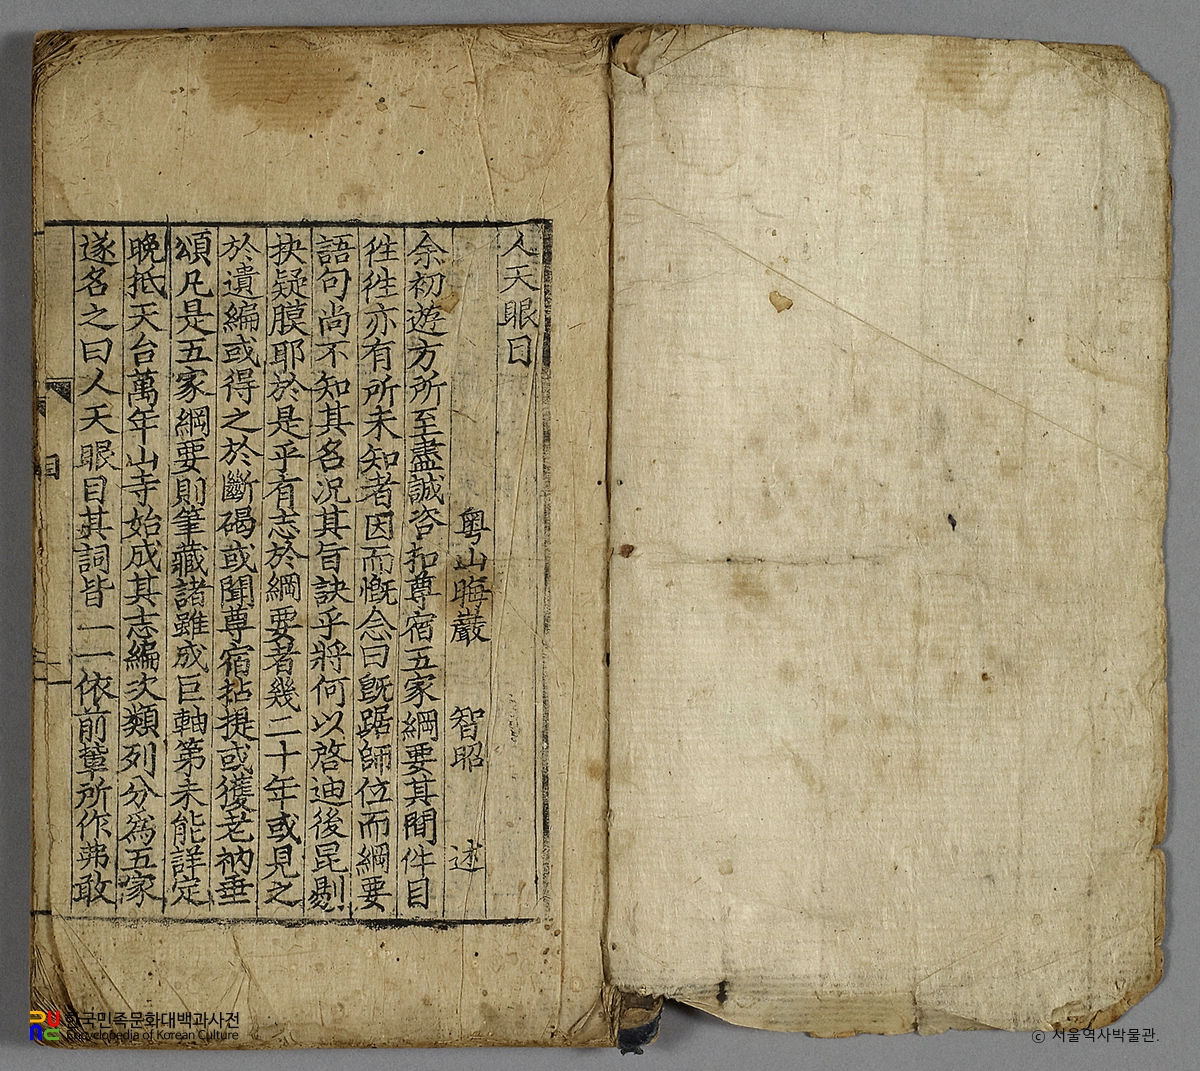 人天眼目
粤山晦巖 智昭 述
余初遊方所至盡誠咨扣尊宿五家綱要其間件目
徃徃亦有所未知者因而慨念曰旣踞師位而綱要
語句尚不知其名况其旨訣乎將何以啓迪後昆剔
抉疑膜耶於是乎有志於綱要者幾二十年或見之
於遺編或得之於斷碣或聞尊宿拈提或獲老衲垂
頌凡是五家綱要則筆藏諸雖成巨軸第未能詳定
晩抵天台萬年山寺始成其志編次類列分爲五家
遂名之曰人天眼目其詞皆一一依前輩所作弗敢
한국민족문화대백과사전
Encyclopedia of Korean Culture
ⓒ 서울역사박물관.